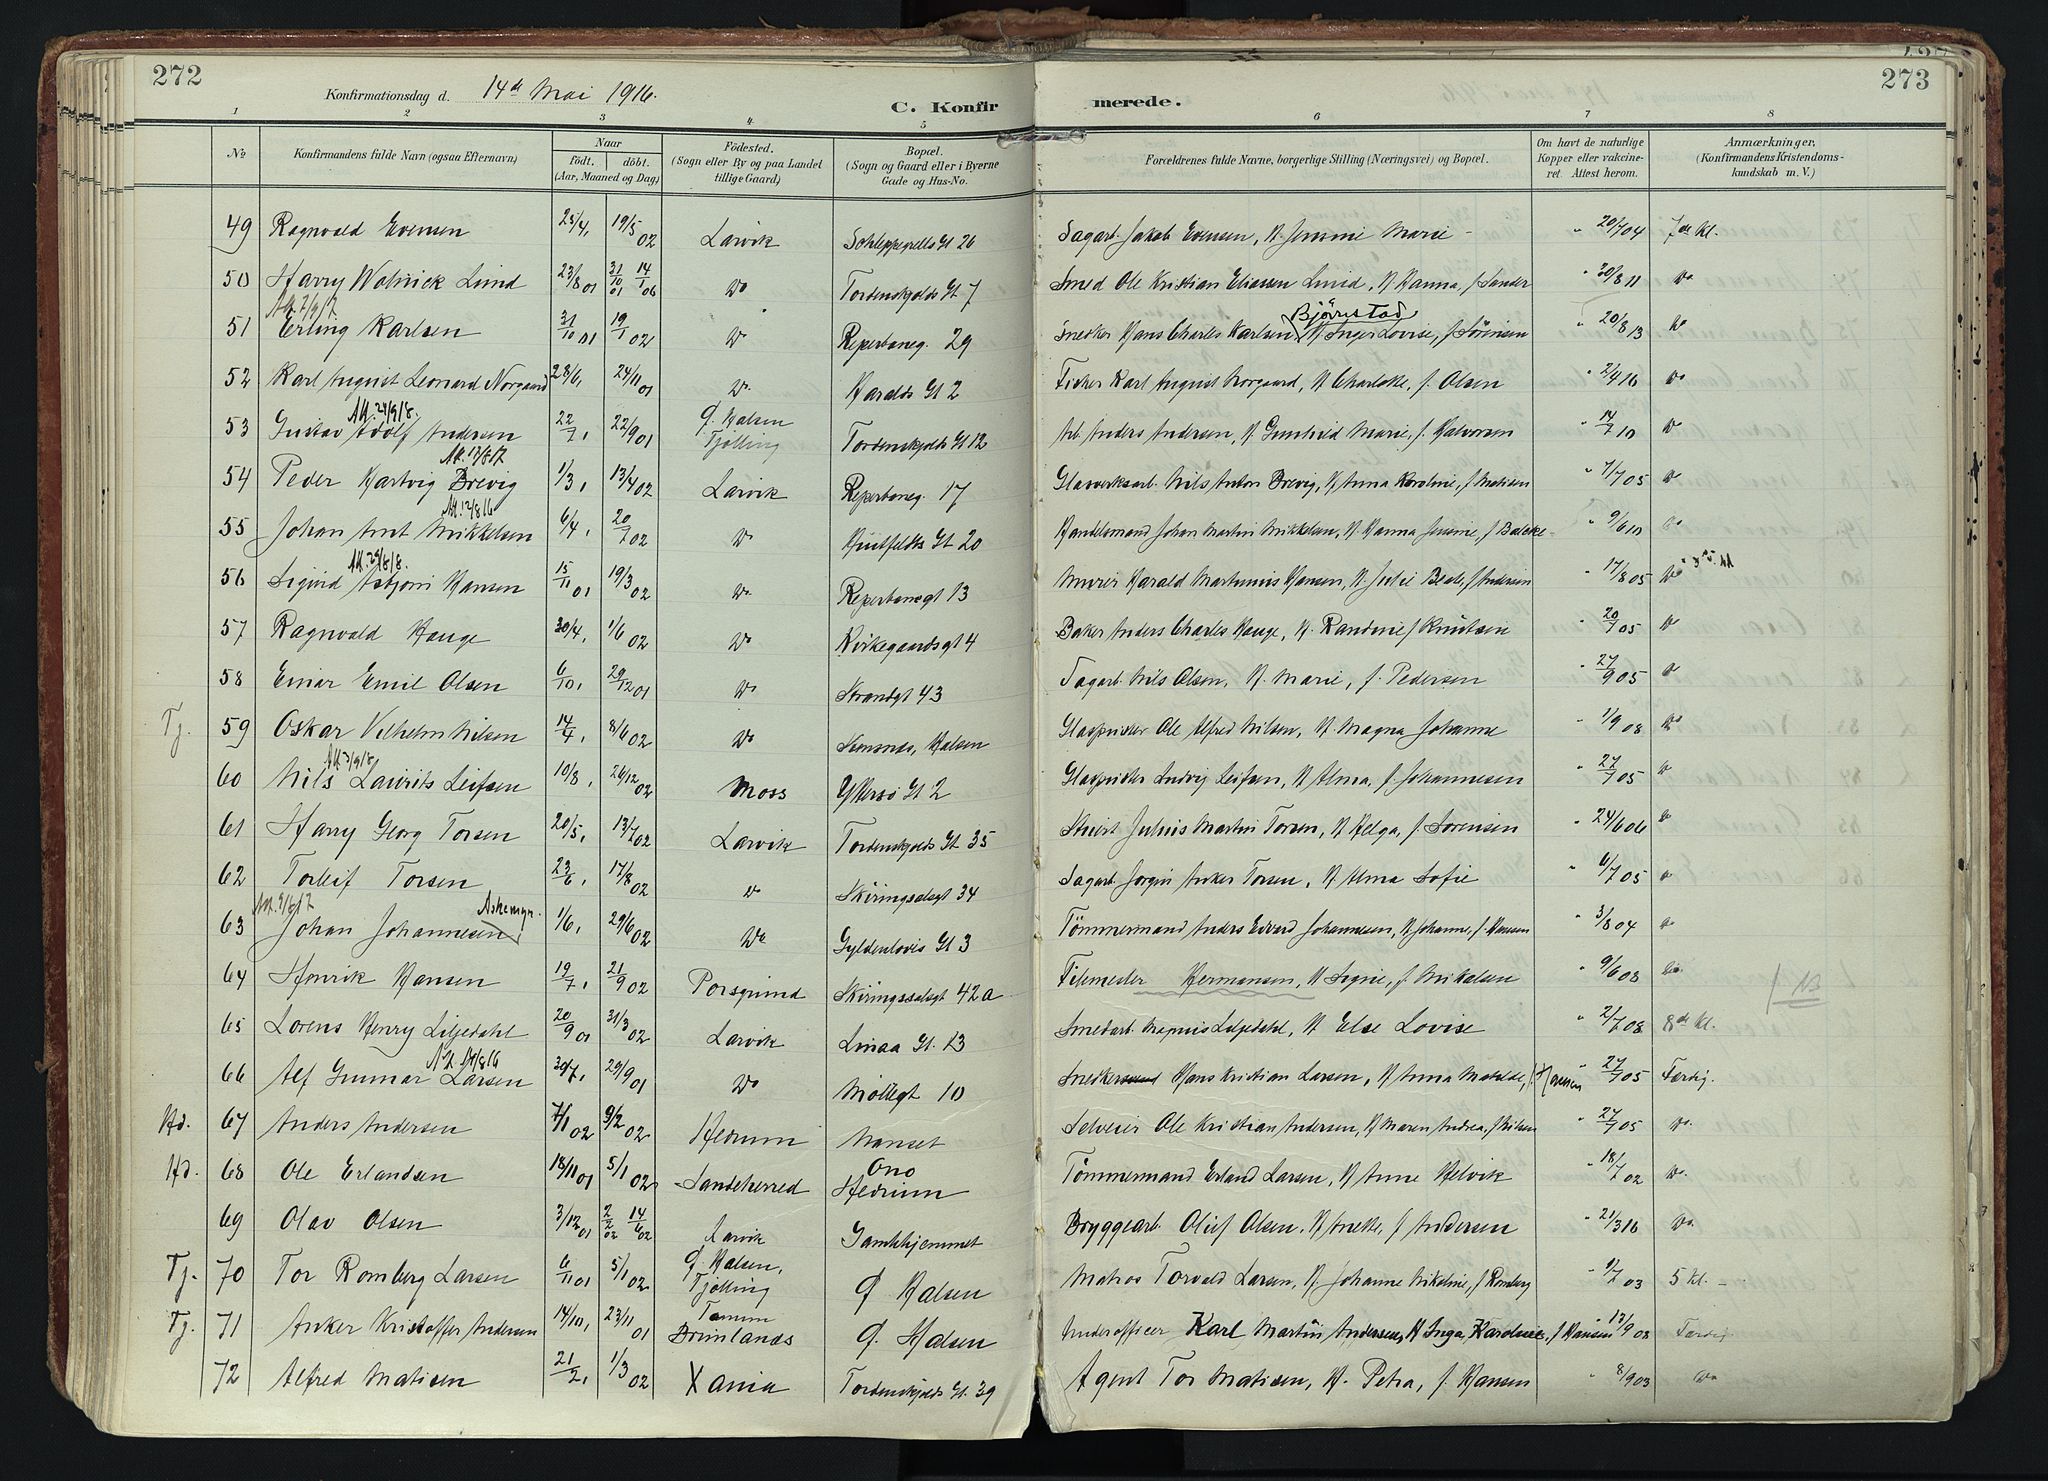 272
Konfirmationsdag d. 14de Mai 1916.
C. Konfirmerede.
273
1 2 3 4 5 6 7 8
No
Konfirmandens fulde Navn (ogsaa Efternavn)
Naar
født. döbt.
(Aar, Maaned og Dag)
Födested.
(Sogn eller By og paa Landet tillige Gaard)
Bopæl.
(Sogn og Gaard eller i Byerne Gade og Hus-No.
Forældrenes fulde Navne, borgerlige Stilling (Næringsvei) og Bopæl.
Om havt de naturlige Kopper eller vakcineret. Attest herom.
Anmærkninger,
(Konfirmandens Kristendomskundskab m. V.)
49 Ragnvald Evensen 25/4 1 19/5 02 Larvik Schleppegrells Gt 26 Sagarb. Jakob Evensen, H. Jensine Marie - " 20/7 04 7de Kl.
50 Harry Lund 23/8 01 31/10 01 14/1 06 Do Tordenskjolds Gt 7 Smed Ole Kristian Eliassen Lund, H Hanna, f Sander " 30/8 11 Do
51 Att. 2/9 17 Erling Karlsen 31/10 01 19/1 02 Do Reperbaneg. 29 Snedker Hans Charles Karlsen Björnstad, H Inger Lovise, f Sörensen " 20/8 13 Do
52 Karl August Leonard Norgaard 28/6 1 24/11 01 Do Haralds Gt 2 Karl August Norgaard, H Charlotte, f. Olsen " 2/4 16 Do
53 Gustav Adolf Andersen Att. 24/9 18. 22/7 1 22/9 01 Ö. Halsen Tjølling Tordenskjolds Gt 12 Arb Anders Andersen, H Gunhild Marie, f. Halvorsen " 14/7 10 Do
54 Peder Hartvig Brevig Att. 13/8 17 1/3 1 13/4 02 Larvik Reperbaneg. 17 Glasverksarb. Nils Anton Brevig, H Anna Karoline, f Matisen " 7/7 05 Do
55 Johan Arnt Mikkelsen Att. 12/8 16 6/4 1 20/7 02 Do Huitfeldts Gt 20 Handelsmand Johan Martin Mikkelsen, H Hanna Jensine, f Balche " 9/6 10 Do
56 Sigurd Asbjørn Hansen Att. 28/8 18. 15/11 01 19/3 02 Do Reperbanegt 13 Murer Harald Martinius Hansen, H. Julie Beate, f Andersen " 17/8 05 Do
57 Ragnvald Hauge 30/4 1 1/6 02 Do Kirkegaardsgt 4 Baker Anders Charles Hauge, H. Randine f Knutsen " 20/7 05 Do
58 Einar Emil Olsen 6/10 1 29/12 01 Do Strandgt 43 Sagarb. Nils Olsen, H. Marie, f. Pedersen " 27/9 05 Do
Tj. 59 Oskar Vilhelm Nilsen 14/4 1 8/6 02 Do Halsen Ole Alfred Nilsen, H Magna Johanne " 1/9 08 Do
60 Nils Laurits Leifsen Att 3/9 18 10/8 1 26/12 02 Moss Yttersø Gt 2 Ludvig Leifsen, H Alma, f. Johannesen " 27/7 05 Do
61 Harry Georg Torsen 20/5 1 13/7 02 Larvik Tordenskjolds Gt 35 Stuert Julius Martin Torsen, H Helga, f. Sörensen " 24/6 06 Do
62 Torleif Torsen 23/6 1 17/8 02 Do Skiringsalsgt 34 Sagarb. Jørgen Anker Torsen, H Alma Sofie " 6/7 05 Do
63 Att. 9/6 17 Johan Johannesen Askemyr. 1/6 1 29/6 02 Do Gyldenløvis Gt 3 Tömmermand Anders Edvard Johannesen, H Johanne, f. Hansen " 3/8 04 Do
64 Henrik Hansen 19/7 1 21/9 02 Porsgrund Skiringssalsgt 42 a Filemester Hermansen, H Signe, f. Mikalsen " 9/6 03 Do
65 Lorens Henry Liljedahl 20/9 01 31/3 02 Larvik Linaa Gt. 13 Smedarb. Magnus Liljedahl, H Else Lovise " 2/7 08 8de Kl.
66 Alf Gunnar Larsen Att. 14/8 16 30/7 1 29/9 01 Do Möllegt 10 Snedkersvend Hans Kristian Larsen, H Anna Matilde, f. Hansen " 27/7 05 Færdig.
Hd. 67 Anders Andersen 7/1 02 9/2 02 Hedrum Nanset Selveier Ole Kristian Andersen, H Maren Andrea, f Nilsen " 27/7 05 Do.
Hd. 68 Ole Erlandsen 18/11 01 5/1 02 Sandeherred Ono Hedrum Tömmermand Erland Larsen, H Anne Helvik " 18/7 02 Do.
69 Olav Olsen 3/12 01 2/2 02 14/6 02 Larvik Gamlehjemmet Bryggearb. Oluf Olsen, H Anette, f Andersen " 21/3 16 Do.
Tj. 70 Tor Romberg Larsen 6/11 01 5/1 02 Ö. Halsen, Tjölling Ö Halsen Matros Torvald Larsen, H Johanne Nikoline, f Romberg " 9/7 03 5 Kl. -
Tj. 71 Anker Kristoffer Andersen 14/10 1 23/11 01 Tanum Brunlanes Ö. Halsen Underofficer Karl Martin Andersen, H Inga Karoline, f Hansen " 13/9 03 Færdig
72 Alfred Matisen 21/2 1 1/3 02 Xania Tordenskjolds Gt. 39 Agent Tor Matisen, H. Petra, f. Hansen " 8/9 03 Do